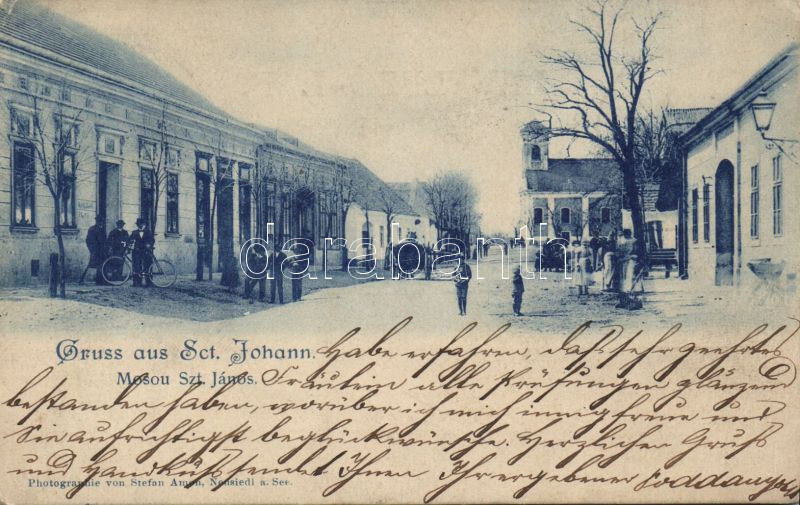 darabanth.com
Gruss aus Sct. Johann.
Habe erfahren, daß sehr geehrtes
Mosou Szt. János.
Fräulein alle Prüfungen glänzend
bestanden haben, worüber ich mich innig freue und
Sie aufrichtigst beglückwünsche. Herzlichen Gruß
und Handkuß sendet Ihnen Ihr ergebener
Photographie von Stefan Amon, Neusiedl a. See.